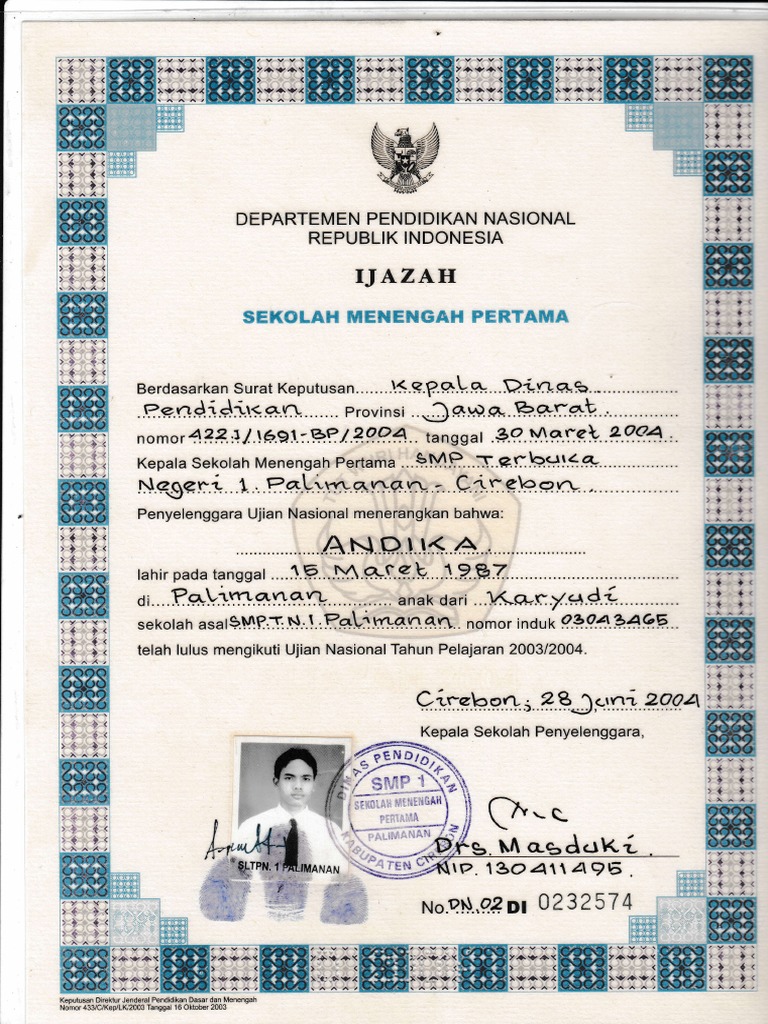 DEPARTEMEN PENDIDIKAN NASIONAL
REPUBLIK INDONESIA
IJAZAH
SEKOLAH MENENGAH PERTAMA
Berdasarkan Surat Keputusan Kepala Dinas
Pendidikan Provinsi Jawa Barat.
nomor 422.1/1691-BP/2004 tanggal 30 Maret 2004.
Kepala Sekolah Menengah Pertama SMP Terbuka
Negeri 1. Palimanan - Cirebon.
Penyelenggara Ujian Nasional menerangkan bahwa:
ANDIKA
lahir pada tanggal 15 Maret 1987
di Palimanan anak dari Karyudi
sekolah asal SMP.T.N.1. Palimanan nomor induk 03043465
telah lulus mengikuti Ujian Nasional Tahun Pelajaran 2003/2004.
Cirebon, 28 Juni 2004
Kepala Sekolah Penyelenggara,
DINAS PENDIDIKAN
SMP 1
SEKOLAH MENENGAH
PERTAMA
PALIMANAN
KABUPATEN CIREBON
SLTPN. 1 PALIMANAN
Drs. Masduki.
NIP. 130411495.
No. DN. 02 DI 0232574
Keputusan Direktur Jenderal Pendidikan Dasar dan Menengah
Nomor 433/C/Kep/LK/2003 Tanggal 16 Oktober 2003